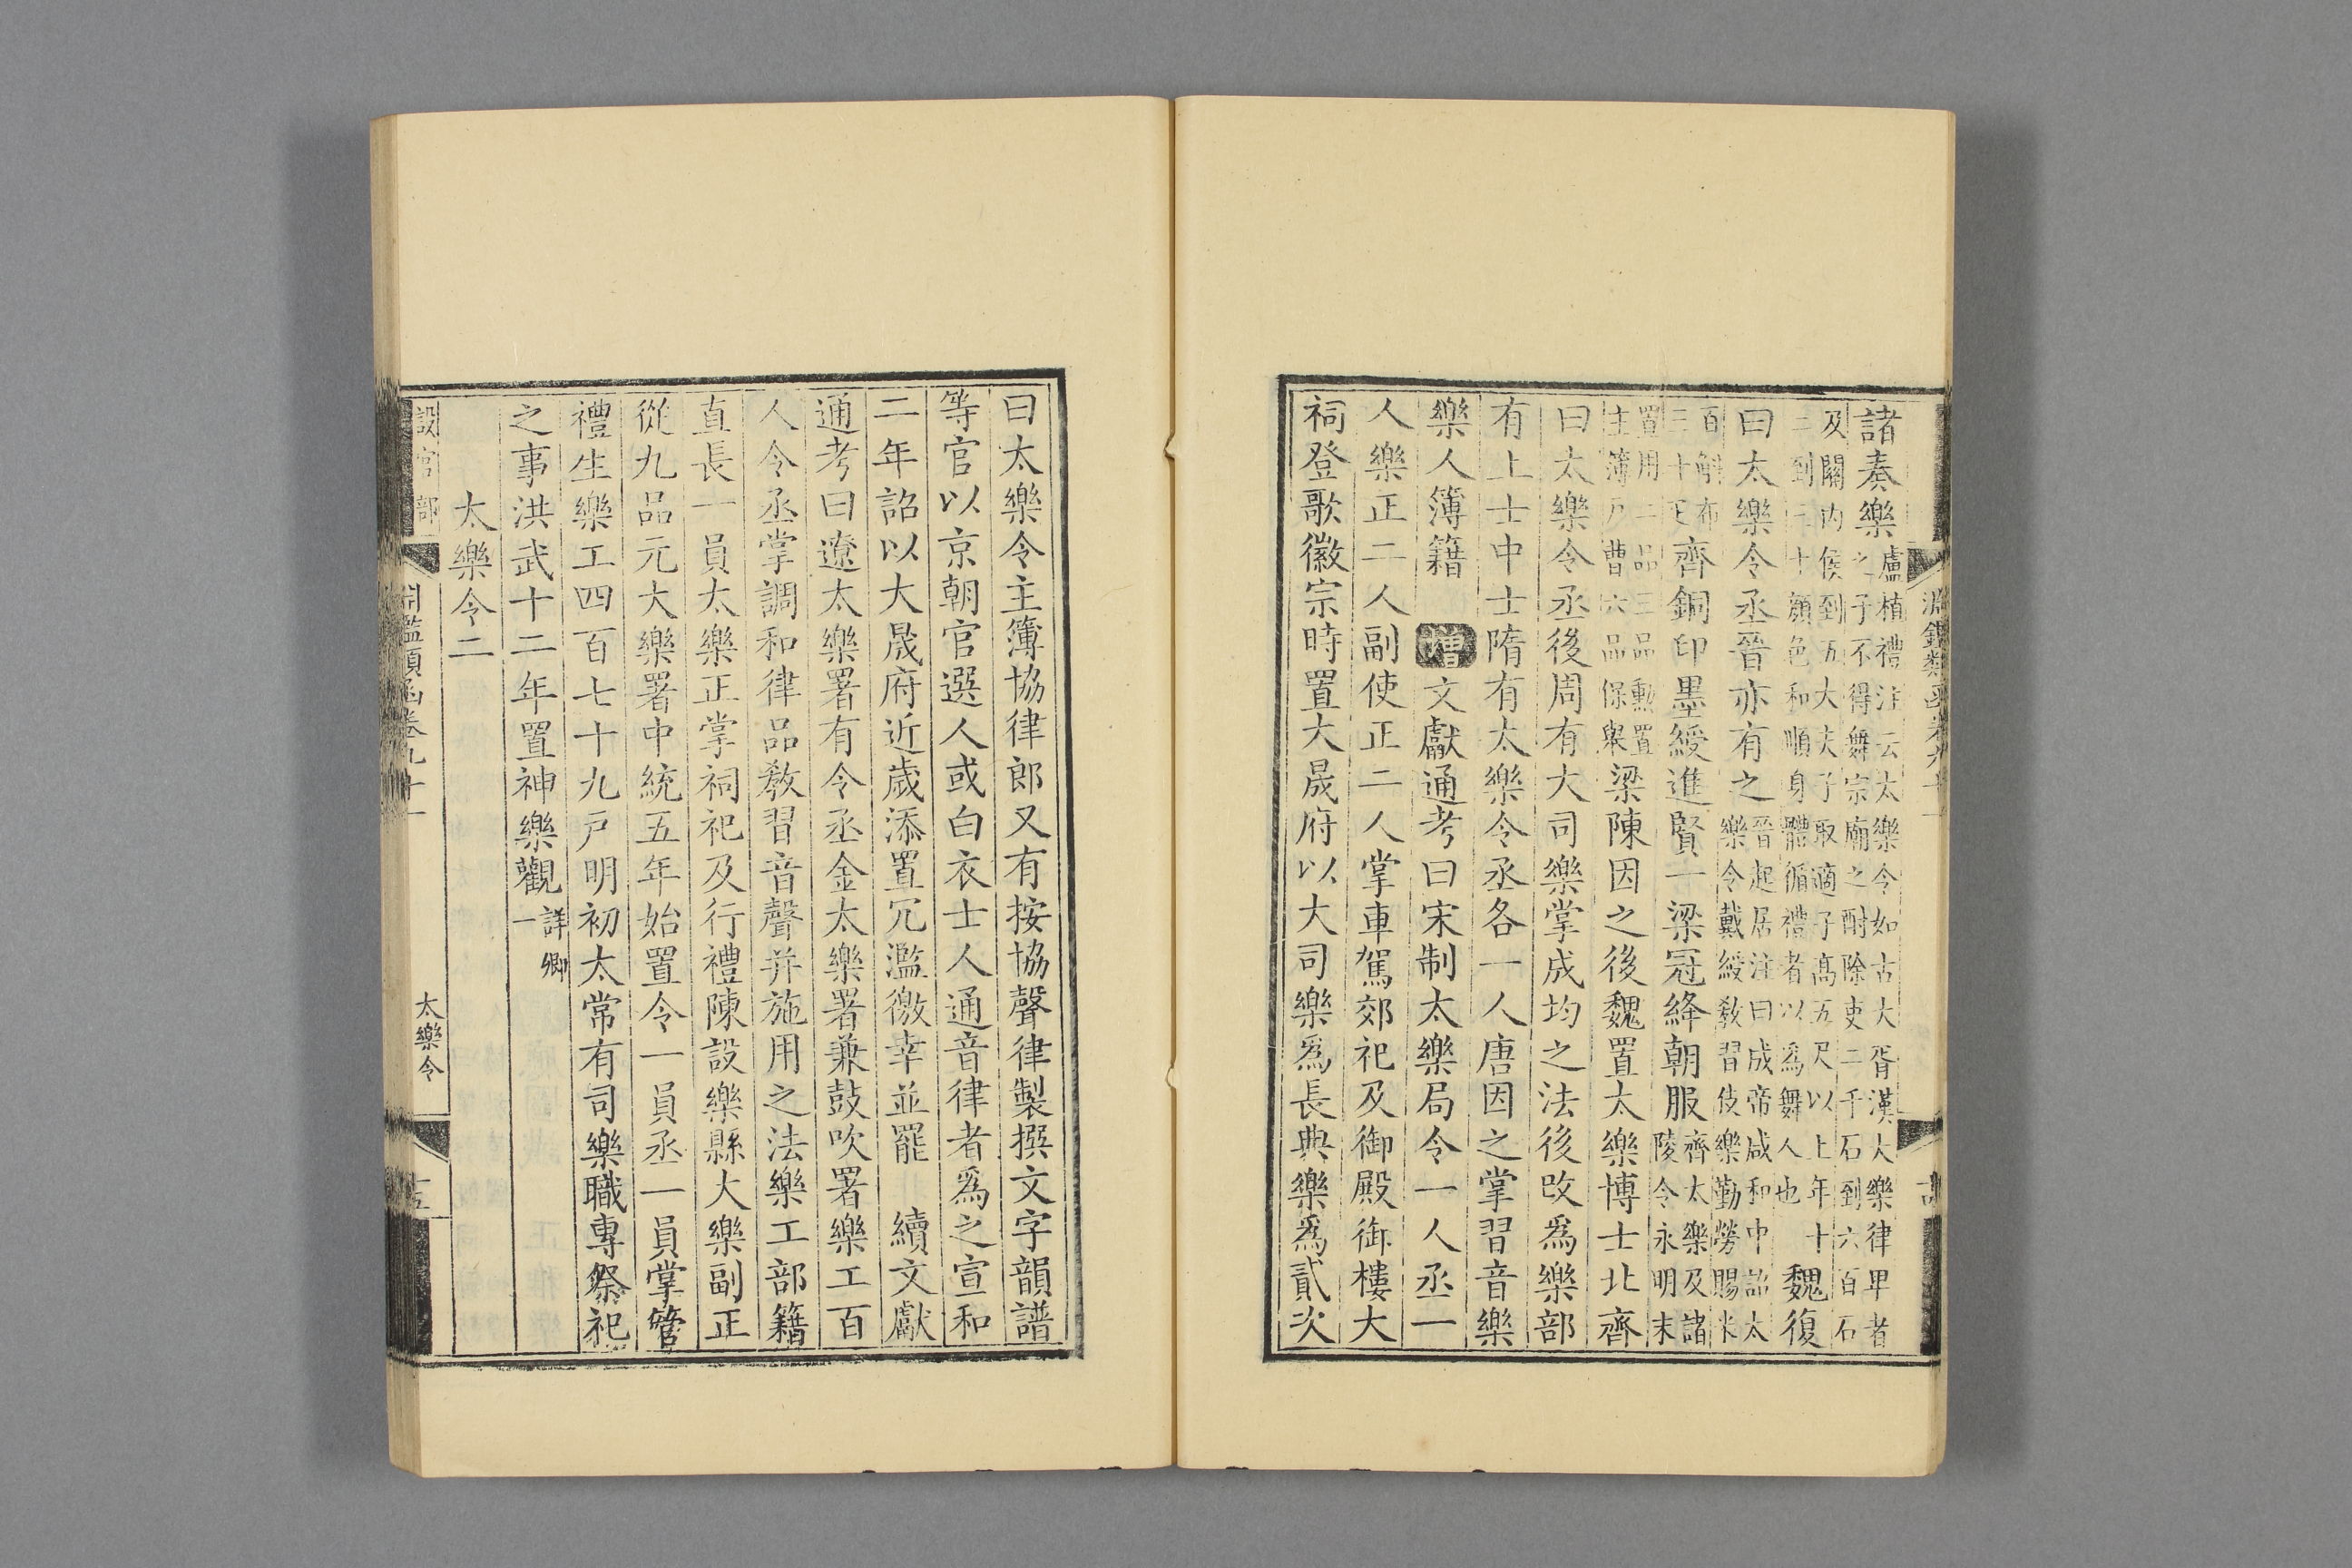 諸奏樂盧植禮注云太樂令如古大胥漢大樂律卑者
之子不得舞宗廟之酎除吏二千石到六百石
及關內侯到五大夫子取適子高五尺以上年十
二到三十顏色和順身體循禮者以爲舞人也魏復
曰太樂令丞晉亦有之晉起居注曰成帝咸和中詔太
樂令戴綬教習伎樂勤勞賜米
百斛布
三十疋齊銅印墨綬進賢一梁冠絳朝服齊太樂及諸
陵令永明末
置用二品三品勳置
主簿戶曹六品保舉梁陳因之後魏置太樂博士北齊
曰太樂令丞後周有大司樂掌成均之法後改爲樂部
有上士中士隋有太樂令丞各一人唐因之掌習音樂
樂人簿籍 增文獻通考曰宋制太樂局令一人丞一
人樂正二人副使正二人掌車駕郊祀及御殿御樓大
祠登歌徽宗時置大晟府以大司樂爲長典樂爲貳次
曰太樂令主簿協律郎又有按協聲律製撰文字韻譜
等官以京朝官選人或白衣士人通音律者爲之宣和
二年詔以大晟府近歲添置冗濫徼幸並罷 續文獻
通考曰遼太樂署有令丞金太樂署兼鼓吹署樂工百
人令丞掌調和律品教習音聲并施用之法樂工部籍
直長一員太樂正掌祠祀及行禮陳設樂縣大樂副正
從九品元大樂署中統五年始置令一員丞一員掌管
禮生樂工四百七十九戶明初太常有司樂職專祭祀
之事洪武十二年置神樂觀詳卿
一
太樂令二
設官部 淵鑑類函卷九十一 太樂令 十五